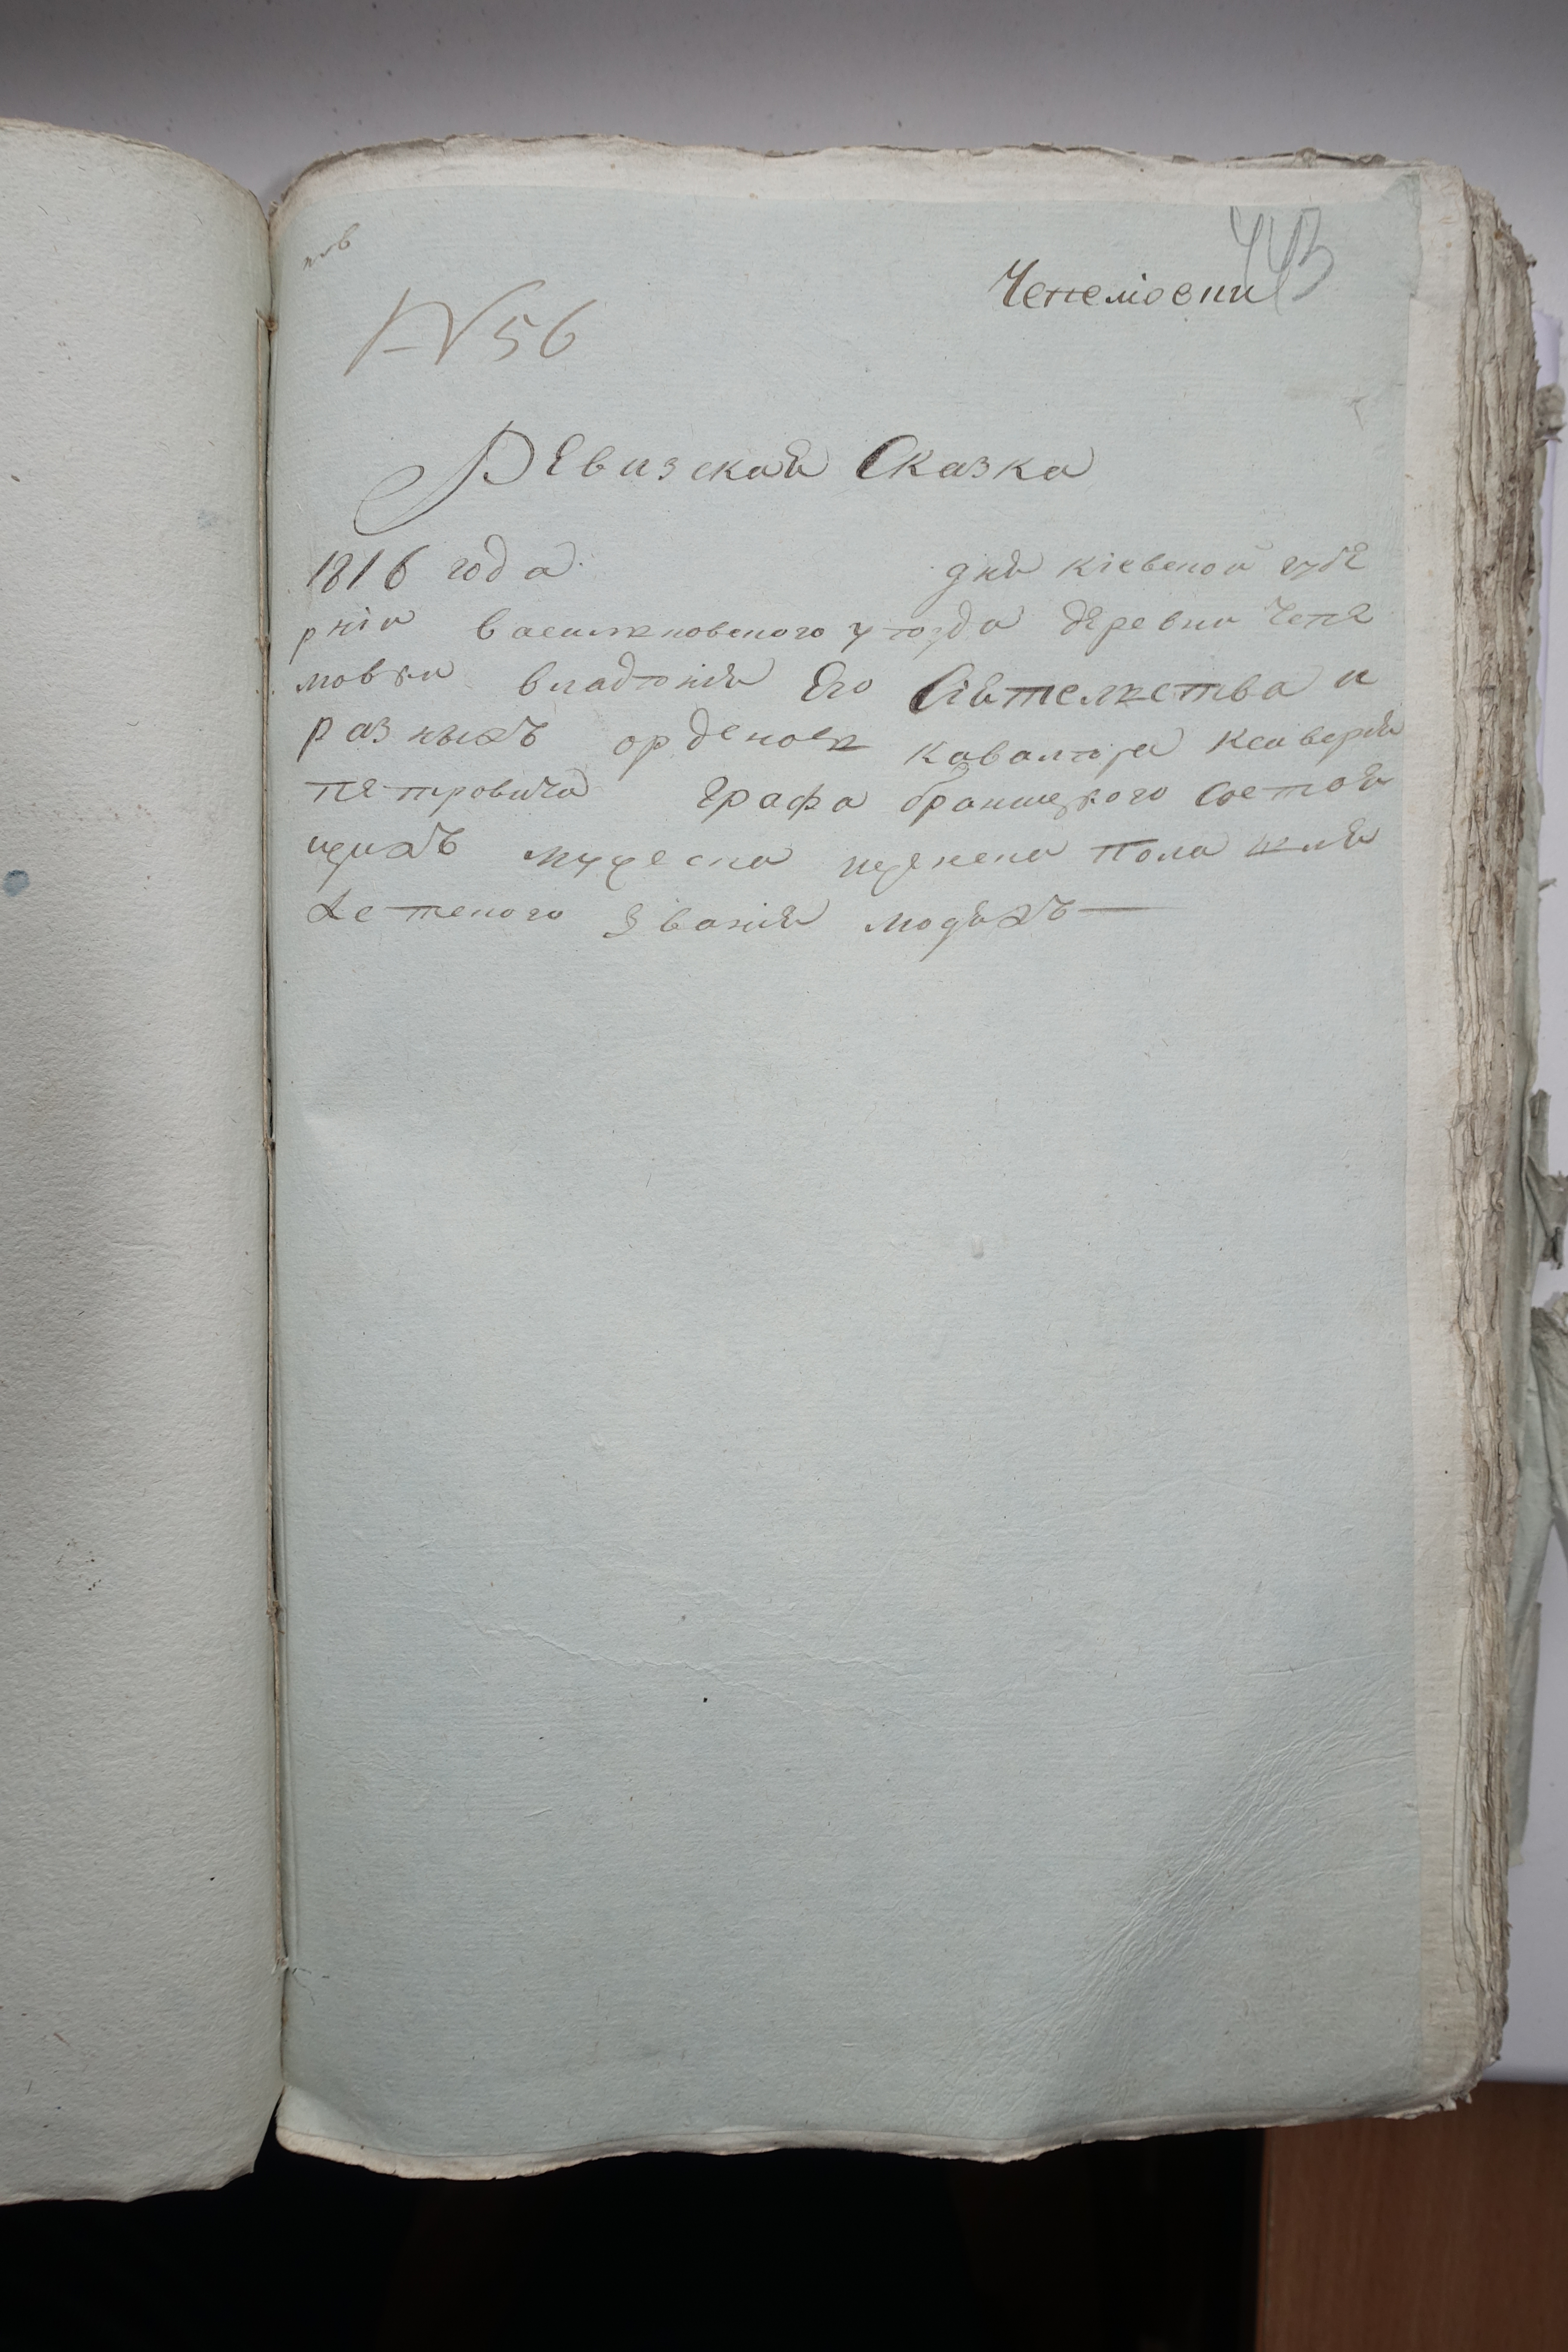 443
Чепеліовки
№ 56
Ревизская Сказка
1816 года дня кіевской губе
рніи василковского уезда деревни Чепе
мовки владѣнія Его Сіятелства и
разныхъ орденовъ кавалѣра ксаверія
петровича Графа браницкого состоя
щихъ мужеска и женска пола шля
хетского званія людяхъ —